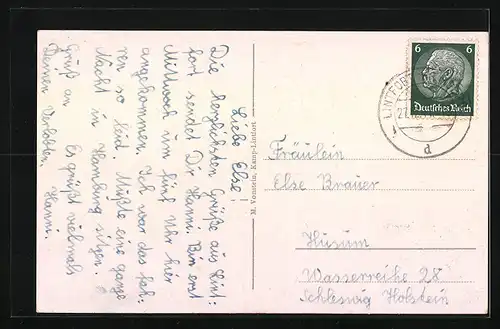 Liebe Else!
Die herzlichsten Grüße aus Lint-
fort sendet Dir Hanni. Bin erst
Mittwoch um fünf Uhr hier
angekommen. Ich war das fah-
ren so leid. Mußte eine ganze
Nacht in Hamburg sitzen.
Es grüßt vielmals
Hanni.
Gruß an
Deinen Verlobten.
M. Vonstein, Kamp-Lintfort
6 6
Deutsches Reich
LINTFORT
d
Fräulein
Else Brauer
Husum
Wasserreihe 28
Schleswig Holstein